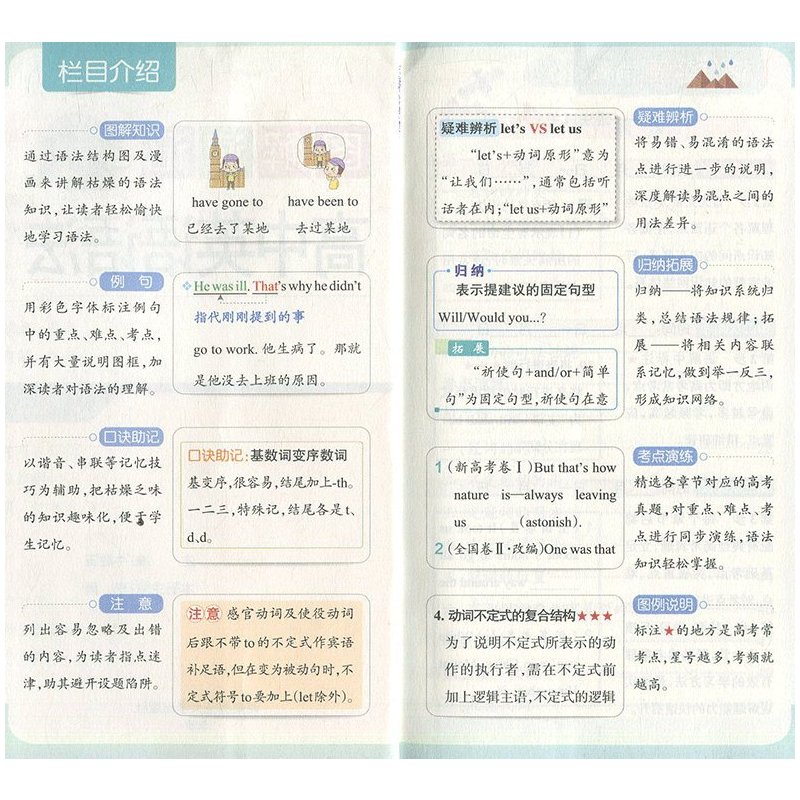 栏目介绍
图解知识
通过语法结构图及漫
画来讲解枯燥的语法
知识，让读者轻松愉快
地学习语法。
have gone to
已经去了某地
have been to
去过某地
例 句
用彩色字体标注例句
中的重点、难点、考点，
并有大量说明图框，加
深读者对语法的理解。
He was ill. That's why he didn't
指代刚刚提到的事
go to work. 他生病了。那就
是他没去上班的原因。
口诀助记
以谐音、串联等记忆技
巧为辅助，把枯燥乏味
的知识趣味化，便于学
生记忆。
口诀助记：基数词变序数词
基变序，很容易，结尾加上-th。
一二三，特殊记，结尾各是t、
d、d。
注 意
列出容易忽略及出错
的内容，为读者指点迷
津，助其避开设题陷阱。
注意 感官动词及使役动词
后跟不带to的不定式作宾语
补足语，但在变为被动句时，不
定式符号to要加上(let除外)。
疑难辨析 let's VS let us
“let's+动词原形”意为
“让我们……”，通常包括听
话者在内；“let us+动词原形”
疑难辨析
将易错、易混淆的语法
点进行进一步的说明，
深度解读易混点之间的
用法差异。
·归纳·
表示提建议的固定句型
Will/Would you...?
拓 展
“祈使句+and/or+简单
句”为固定句型，祈使句在意
归纳拓展
归纳——将知识系统归
类，总结语法规律；拓
展——将相关内容联
系记忆，做到举一反三，
形成知识网络。
1 (新高考卷Ⅰ)But that's how
nature is—always leaving
us ______ (astonish).
2 (全国卷Ⅱ·改编)One was that
考点演练
精选各章节对应的高考
真题，对重点、难点、考
点进行同步演练，语法
知识轻松掌握。
4. 动词不定式的复合结构★★★
为了说明不定式所表示的动
作的执行者，需在不定式前
加上逻辑主语，不定式的逻辑
图例说明
标注★的地方是高考常
考点，星号越多，考频就
越高。